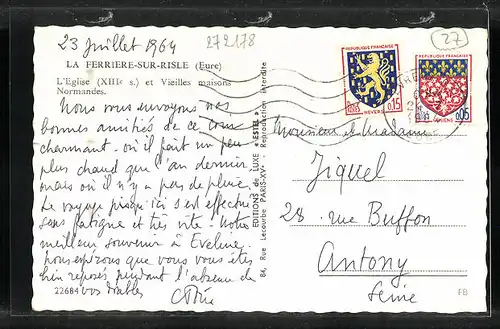 23 Juillet 1964
272178
27
LA FERRIERE-SUR-RISLE (Eure)
L'Eglise (XIIIe s.) et Vieilles maisons
Normandes.
Nous vous envoyons nos
bonnes amitiés de ce coin
charmant - où il fait un peu
plus chaud que l'an dernier
mais où il n'y a pas de pluie.
Le voyage jusqu'ici s'est effectué
sans fatigue et très vite. Notre
meilleur souvenir à Eveline,
nous espérons que vous vous êtes
bien reposés pendant l'absence de
vos diables
22684
EDITIONS de LUXE "ESTEL"
64, Rue Lecourbe PARIS-XVe Reproduction interdite
REPUBLIQUE FRANÇAISE
POSTES
0,15
NEVERS
REPUBLIQUE FRANÇAISE
0,05
AMIENS
Monsieur et Madame
Jiquel
28 rue Buffon
Antony
Seine
FB